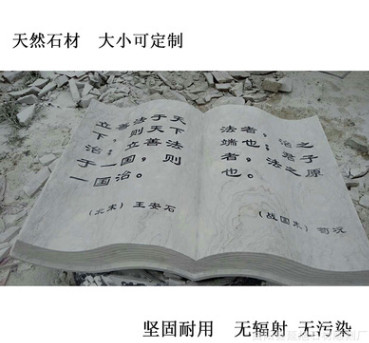 天然石材 大小可定制
立善法于天
下，则天下
治；立善法
于一国，则
一国治。
(北宋) 王安石
法者，治之
端也；君子
者，法之原
也。
(战国末) 荀况
坚固耐用 无辐射 无污染